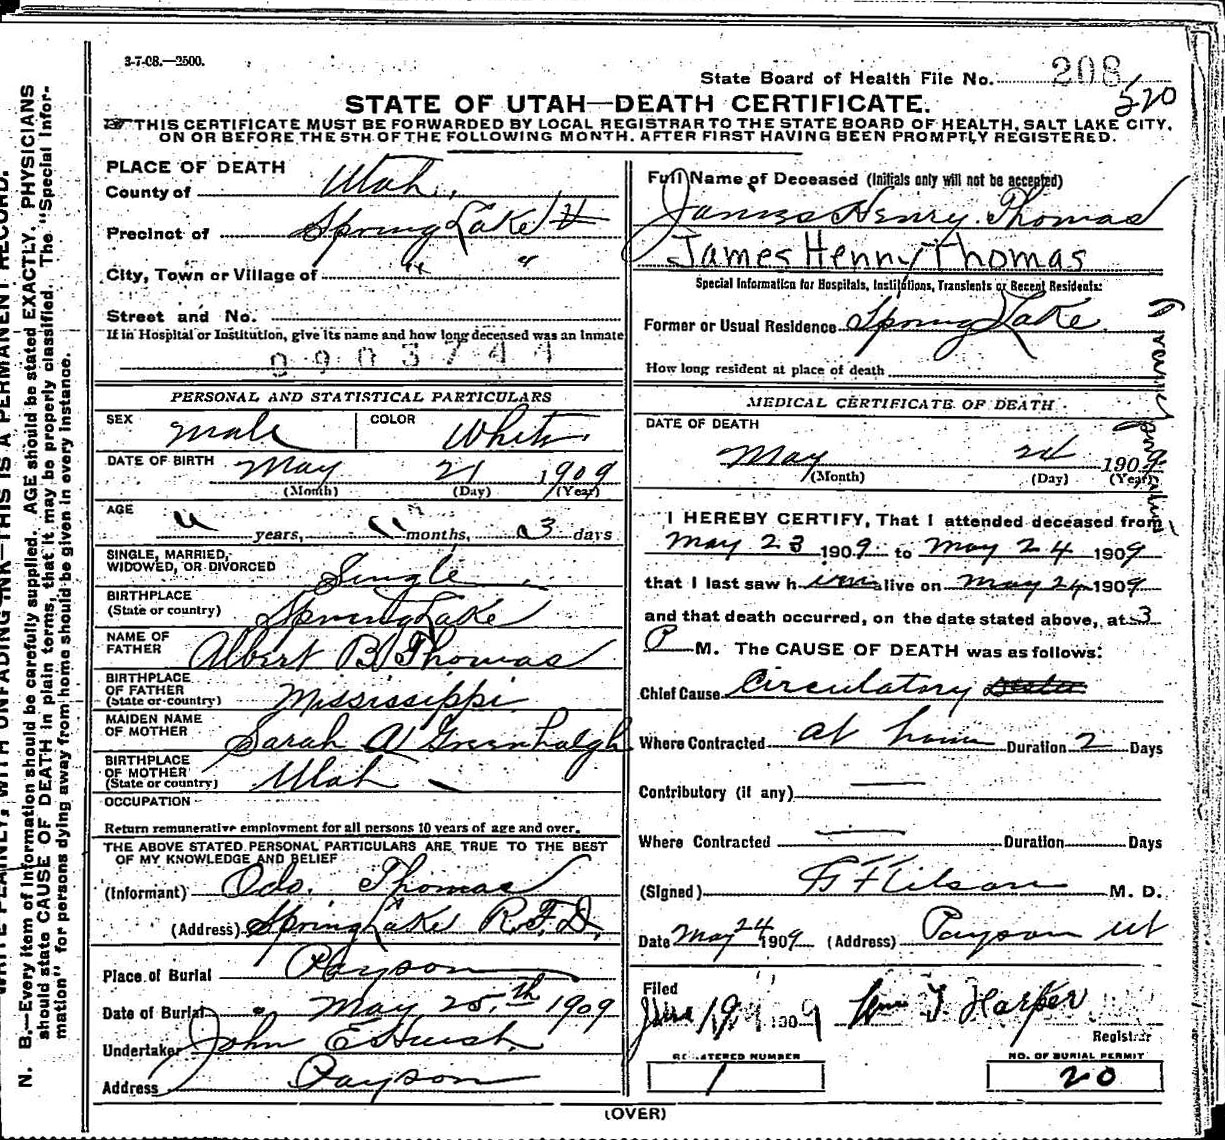 3-7-08.—2500.
State Board of Health File No. 208
520
STATE OF UTAH—DEATH CERTIFICATE.
THIS CERTIFICATE MUST BE FORWARDED BY LOCAL REGISTRAR TO THE STATE BOARD OF HEALTH, SALT LAKE CITY,
ON OR BEFORE THE 5TH OF THE FOLLOWING MONTH, AFTER FIRST HAVING BEEN PROMPTLY REGISTERED.
PLACE OF DEATH
County of Utah,
Precinct of Spring Lake
City, Town or Village of " "
Street and No.
If in Hospital or Institution, give its name and how long deceased was an inmate
0903744
PERSONAL AND STATISTICAL PARTICULARS
SEX male COLOR White
DATE OF BIRTH May 21 1909
(Month) (Day) (Year)
AGE
" years, " months, 03 days
SINGLE, MARRIED,
WIDOWED, OR DIVORCED Single
BIRTHPLACE
(State or country) Spring Lake
NAME OF
FATHER Albert B Thomas
BIRTHPLACE
OF FATHER
(State or country) Mississippi
MAIDEN NAME
OF MOTHER Sarah A Greenhalgh
BIRTHPLACE
OF MOTHER
(State or country) Utah
OCCUPATION
Return remunerative employment for all persons 10 years of age and over.
THE ABOVE STATED PERSONAL PARTICULARS ARE TRUE TO THE BEST
OF MY KNOWLEDGE AND BELIEF
(Informant) Odo. Thomas
(Address) Spring Lake R.F.D.
Place of Burial Payson
Date of Burial May 25th 1909
Undertaker John E
Address Payson
Full Name of Deceased (Initials only will not be accepted)
James Henry Thomas
James Henry Thomas
Special Information for Hospitals, Institutions, Transients or Recent Residents:
Former or Usual Residence Spring Lake
How long resident at place of death
MEDICAL CERTIFICATE OF DEATH
DATE OF DEATH
May 24 1909
(Month) (Day) (Year)
I HEREBY CERTIFY, That I attended deceased from
May 23 1909 to May 24 1909
that I last saw him alive on May 24 1909
and that death occurred, on the date stated above, at 3
P M. The CAUSE OF DEATH was as follows:
Chief Cause Circulatory
Where Contracted at home Duration 2 Days
Contributory (if any) —
Where Contracted — Duration Days
(Signed) M. D.
Date May 24 1909 (Address) Payson Ut
Filed
June 1909 Wm T. Harper
Registrar
REGISTERED NUMBER
1
NO. OF BURIAL PERMIT
20
(OVER)
WRITE PLAINLY, WITH UNFADING INK—THIS IS A PERMANENT RECORD.
N. B.—Every item of information should be carefully supplied. AGE should be stated EXACTLY. PHYSICIANS
should state CAUSE OF DEATH in plain terms, that it may be properly classified. The "Special Infor-
mation" for persons dying away from home should be given in every instance.